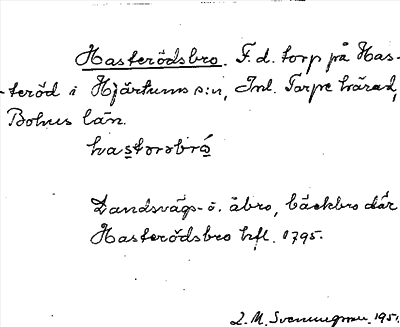 Hasterödsbro. F. d. torp på Has-
-teröd i Hjärtums s:n, Inl. Torpe härad,
Bohus län.
hastorobró
Landsvägs- o. åbro, bäckbro där
Hasterödsbro hfl. 1795.
L. M. Svenungsson. 1951.